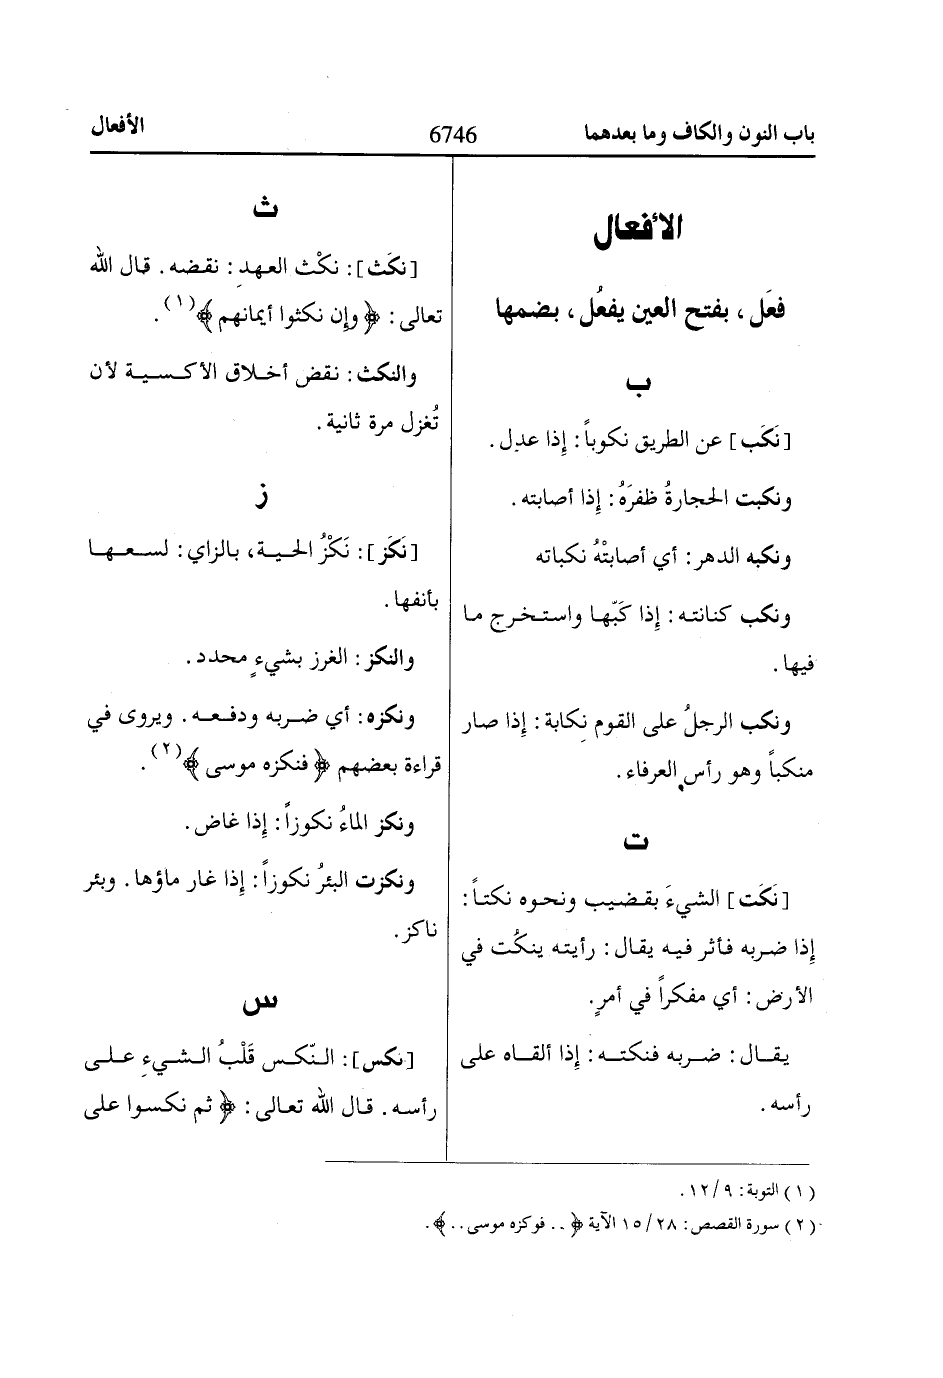 باب النون والكاف وما بعدهما
6746
الأفعال
الأفعال
فعَل ، بفتح العين يفعُل ، بضمها
ب
[نَكَب] عن الطريق نكوباً : إذا عدل .
ونكبت الحجارةُ ظفرَهُ : إذا أصابته .
ونكبه الدهر : أي أصابتْهُ نكباته
ونكب كنانته : إذا كَبّها واستخرج ما
فيها .
ونكب الرجلُ على القوم نكابة : إذا صار
منكباً وهو رأس العرفاء .
ت
[نَكَت] الشيءَ بقضيب ونحوه نكتاً :
إذا ضربه فأثر فيه يقال : رأيته ينكُت في
الأرض : أي مفكراً في أمرٍ .
يقال : ضربه فنكته : إذا ألقاه على
رأسه .
ث
[نكَث] : نكْث العهد : نقضه . قال الله
تعالى : ﴿ وإن نكثوا أيمانهم ﴾(١) .
والنكث : نقض أخلاق الأكسية لأن
تُغزل مرة ثانية .
ز
[نَكَز] : نَكْزُ الحية ، بالزاي : لسعها
بأنفها .
والنكز : الغرز بشيءٍ محدد .
ونكزه : أي ضربه ودفعه . ويروى في
قراءة بعضهم ﴿ فنكزه موسى ﴾(٢) .
ونكز الماءُ نكوزاً : إذا غاض .
ونكزت البئرُ نكوزاً : إذا غار ماؤها . وبئر
ناكز .
س
[نكس] : النّكس قَلْبُ الشيءِ على
رأسه . قال الله تعالى : ﴿ ثم نكسوا على
(١) التوبة : ٩/ ١٢ .
(٢) سورة القصص : ٢٨/ ١٥ الآية ﴿ .. فوكزه موسى .. ﴾ .